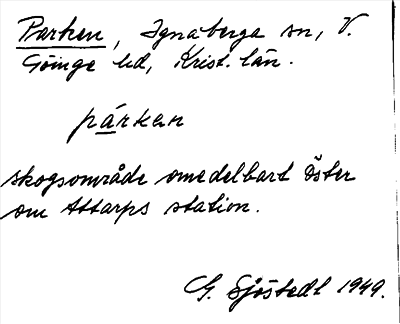 Parken, Ignaberga sn, V.
Göinge hd, Krist. län.
párken
skogsområde omedelbart öster
om Attarps station.
G. Sjöstedt 1949.